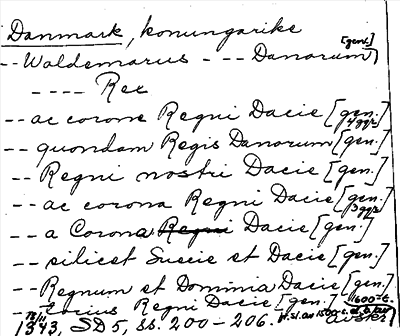 Danmark, konungarike
-- Waldemarus --- Danorum [gen.]
---- Rex
-- ac corone Regni Dacie [gen. 4 ggr]
-- quondam Regis Danorum [gen.]
-- Regni nostri Dacie [gen.]
-- ac corona Regni Dacie [gen. 3 ggr]
-- a Corona Regni Dacie [gen.]
-- silicet Suecie et Dacie [gen.]
-- Regnum et Dominia Dacie [gen.]
-- tocius Regni Dacie [gen.]
18/11 1343, SD 5, ss. 200 - 206.